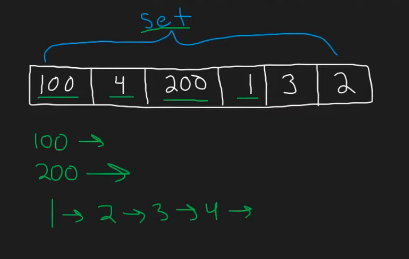 set
100 4 200 1 3 2
100 →
200 →
1 → 2 → 3 → 4 →